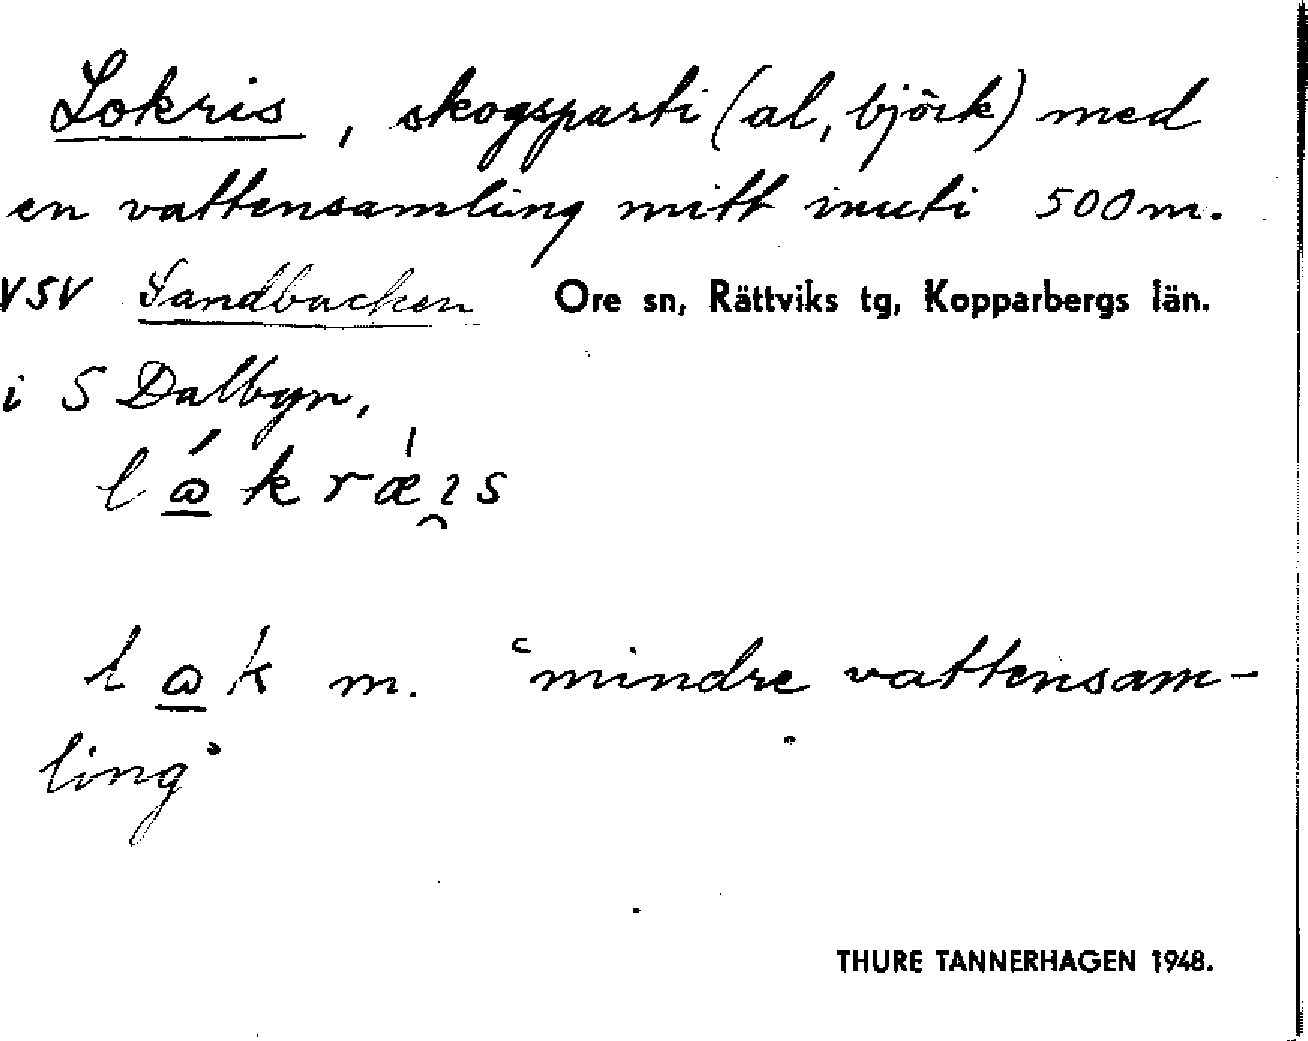 Lokris, skogsparti (al, björk) med
en vattensamling mitt inuti 500 m.
VSV Sandbacken Ore sn, Rättviks tg, Kopparbergs län.
i S Dalbyn,
m. "mindre vattensam-
ling"
THURE TANNERHAGEN 1948.